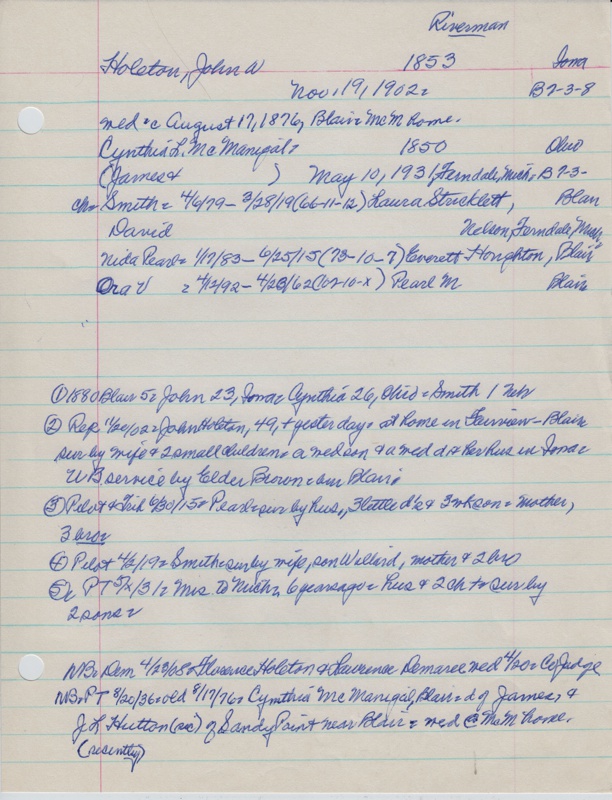 Riverman
Holston, John W 1853 Iowa
Nov. 19, 1902= B7-3-8
med=c August 17, 1876, Blair= McM home.
Cynthia L. McManigal= 1850 Ohio
(James & ) May 10, 1931, Ferndale, Mich= B7-3-
ch= Smith= 4/6/79- 3/28/19 (66-11-12) Laura Stricklett, Blair
David Nelson, Ferndale, Mich
Nida Pearl= 1/17/83- 6/25/15 (73-10-7) Everett Houghton, Blair
Ora V = 4/12/92- 4/23/62 (102-10-x) Pearl M Blair
① 1880 Blair 5= John 23, Iowa= Cynthia 26, Ohio= Smith 1 Neb
② Rep. 11/20/02= John Holston, 49, + yesterday= at home in Fairview- Blair
sur by wife & 2 small children= a med son & a med d & her hus in Iowa=
UB service by Elder Brown= bur Blair=
③ Pilot & Trib 6/30/15= Pearl= sur by hus., 3 little d's & 3 wk son= mother,
3 bro=
④ Pilot 4/2/19= Smith= sur by wife, son Willard, mother & 2 bro
⑤ PT 5/ /31= Mrs. to Mich= 6 years ago= hus & 2 ch + = sur by
2 sons=
NB= Dem 4/23/08= Florence Holston & Lawrence Demaree med 4/20= Co Judge
NB= PT 8/20/36= old 8/17/76= Cynthia McManigal, Blair= d of James, &
J L Hutton (sic) of Sandy Point near Blair= med @ McM home.
(recently)